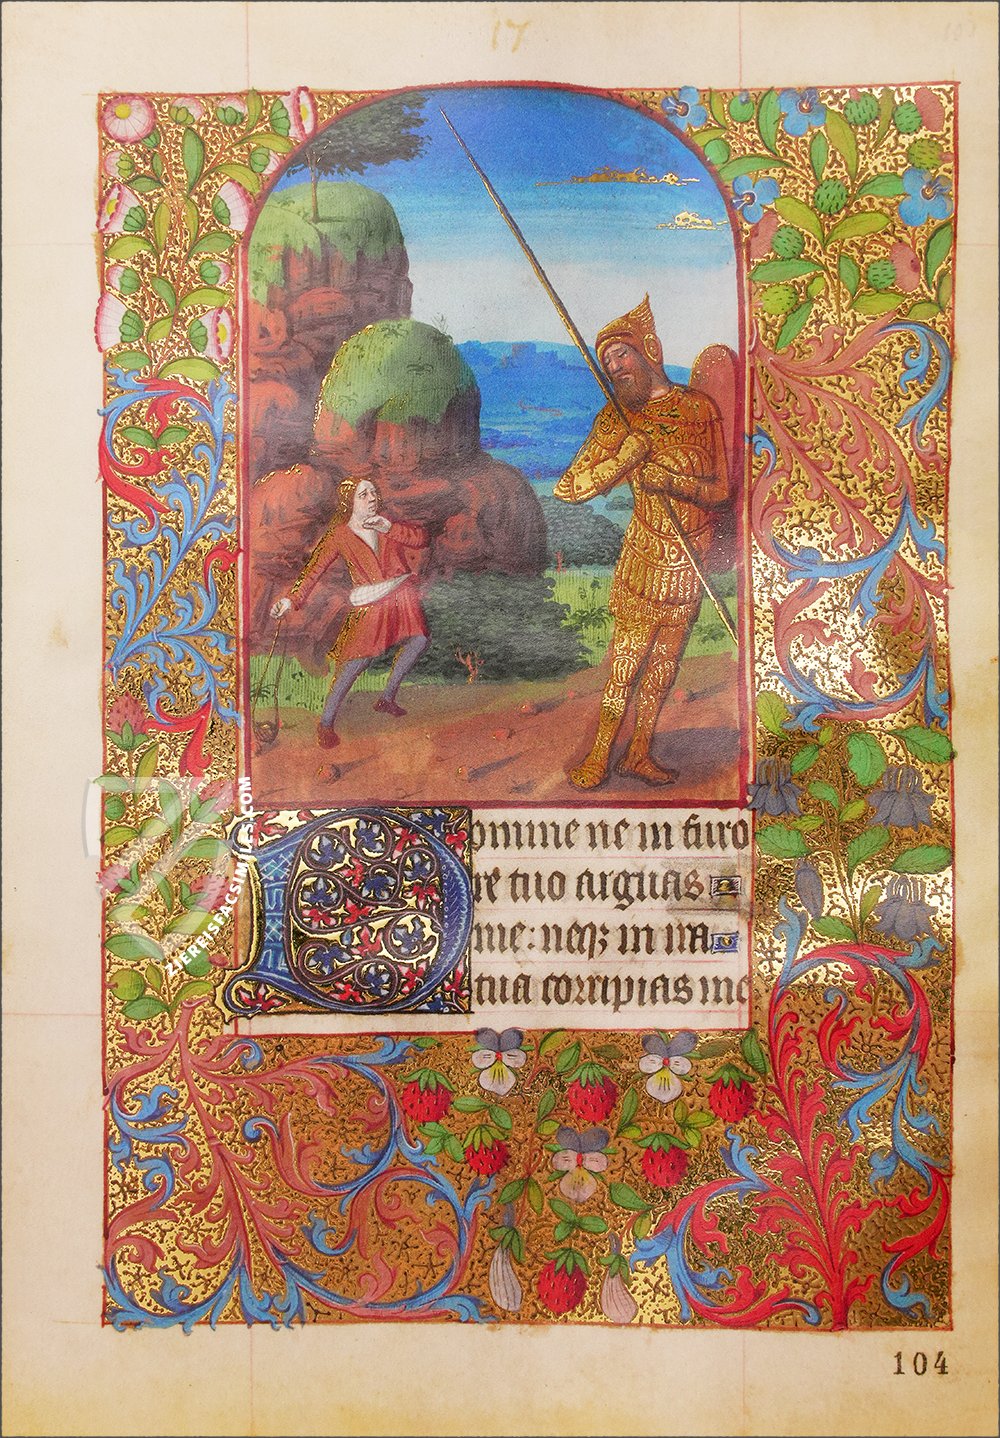 17
Domine ne in furo
re tuo arguas
me: neqz in ira
tua corripias me
ZIEREISFACSIMILES.COM
104